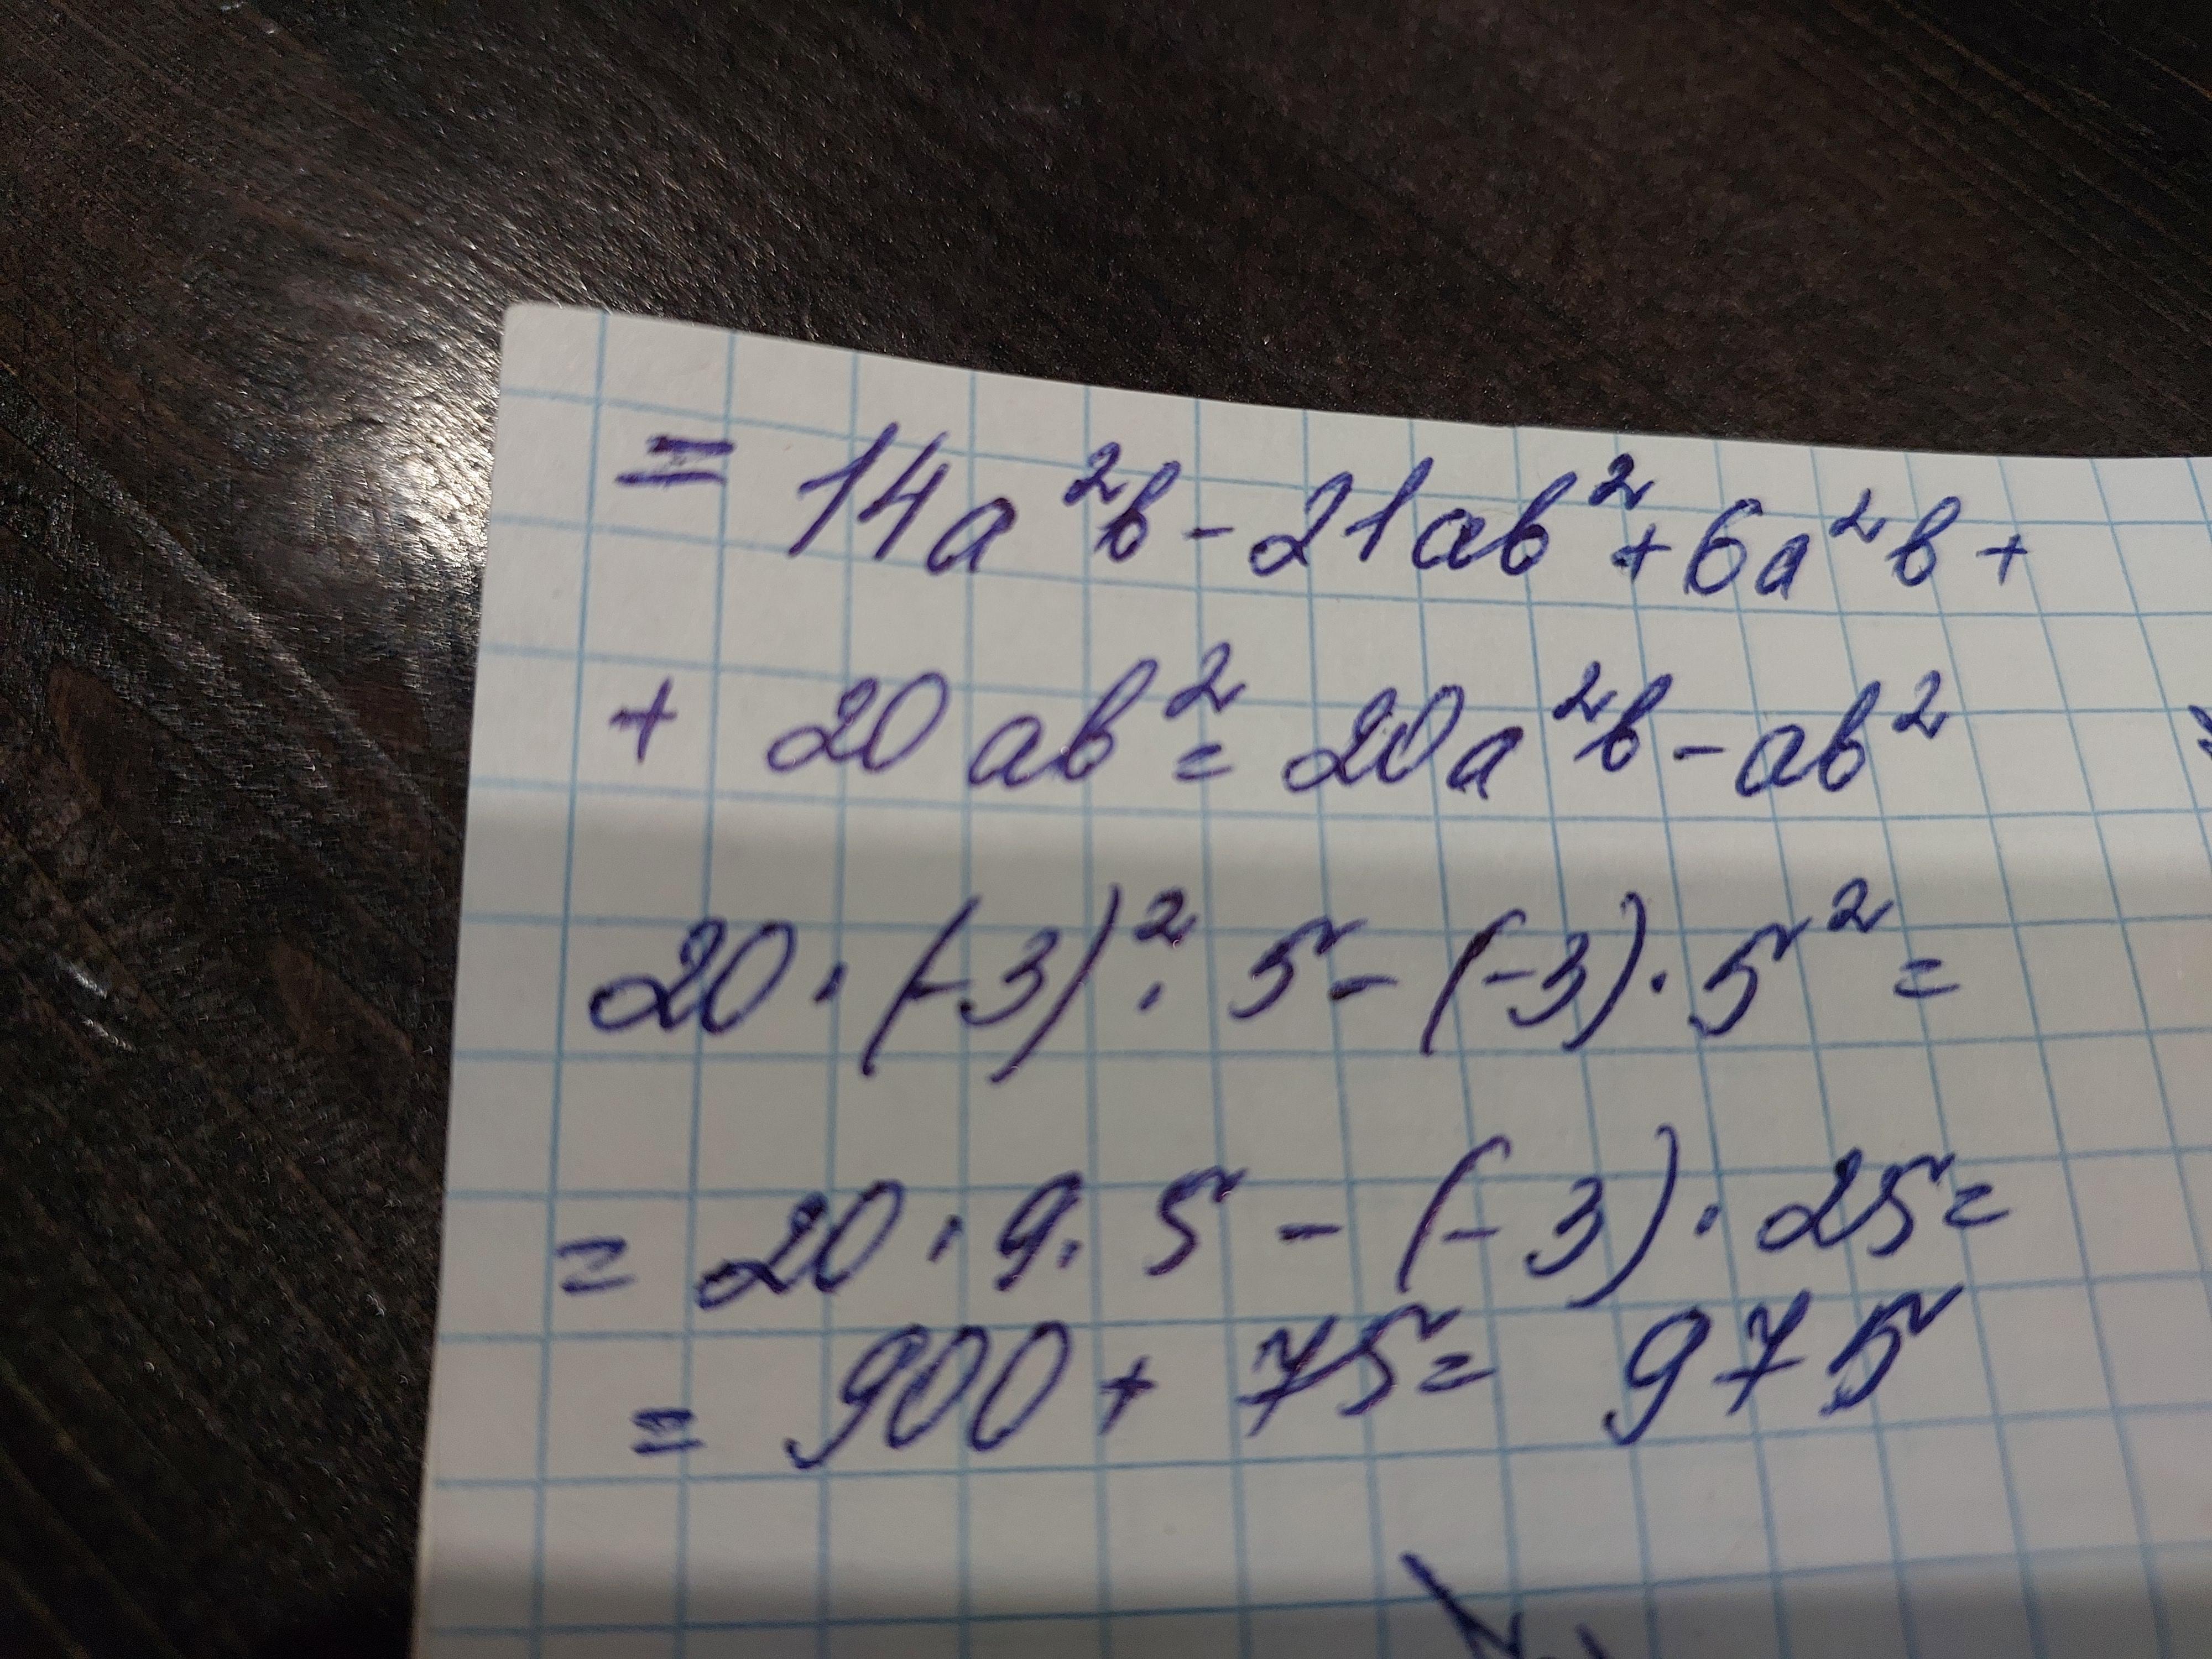 = 14a²b - 21ab² + 6a²b +
+ 20ab² = 20a²b - ab²
20 · (-3)² · 5 - (-3) · 5² =
= 20 · 9 · 5 - (-3) · 25 =
= 900 + 75 = 975